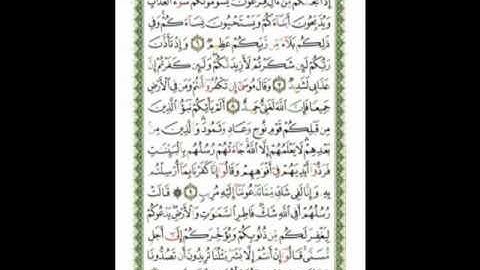 إِذْ أَنجَىٰكُم مِّنْ ءَالِ فِرْعَوْنَ يَسُومُونَكُمْ سُوٓءَ ٱلْعَذَابِ
وَيُذَبِّحُونَ أَبْنَآءَكُمْ وَيَسْتَحْيُونَ نِسَآءَكُمْ وَفِى
ذَٰلِكُم بَلَآءٌ مِّن رَّبِّكُمْ عَظِيمٌ ٦ وَإِذْ تَأَذَّنَ
رَبُّكُمْ لَئِن شَكَرْتُمْ لَأَزِيدَنَّكُمْ وَلَئِن كَفَرْتُمْ إِنَّ
عَذَابِى لَشَدِيدٌ ٧ وَقَالَ مُوسَىٰٓ إِن تَكْفُرُوٓا۟ أَنتُمْ وَمَن فِى ٱلْأَرْضِ
جَمِيعًا فَإِنَّ ٱللَّهَ لَغَنِىٌّ حَمِيدٌ ٨ أَلَمْ يَأْتِكُمْ نَبَؤُا۟ ٱلَّذِينَ
مِن قَبْلِكُمْ قَوْمِ نُوحٍ وَعَادٍ وَثَمُودَ وَٱلَّذِينَ مِنۢ
بَعْدِهِمْ لَا يَعْلَمُهُمْ إِلَّا ٱللَّهُ جَآءَتْهُمْ رُسُلُهُم بِٱلْبَيِّنَٰتِ
فَرَدُّوٓا۟ أَيْدِيَهُمْ فِىٓ أَفْوَٰهِهِمْ وَقَالُوٓا۟ إِنَّا كَفَرْنَا بِمَآ أُرْسِلْتُم
بِهِۦ وَإِنَّا لَفِى شَكٍّ مِّمَّا تَدْعُونَنَآ إِلَيْهِ مُرِيبٍ ٩ قَالَتْ
رُسُلُهُمْ أَفِى ٱللَّهِ شَكٌّ فَاطِرِ ٱلسَّمَٰوَٰتِ وَٱلْأَرْضِ يَدْعُوكُمْ
لِيَغْفِرَ لَكُم مِّن ذُنُوبِكُمْ وَيُؤَخِّرَكُمْ إِلَىٰٓ أَجَلٍ
مُّسَمًّى قَالُوٓا۟ إِنْ أَنتُمْ إِلَّا بَشَرٌ مِّثْلُنَا تُرِيدُونَ أَن تَصُدُّونَا